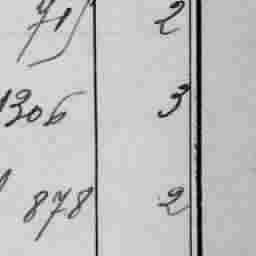 71 2
1306 3
878 2